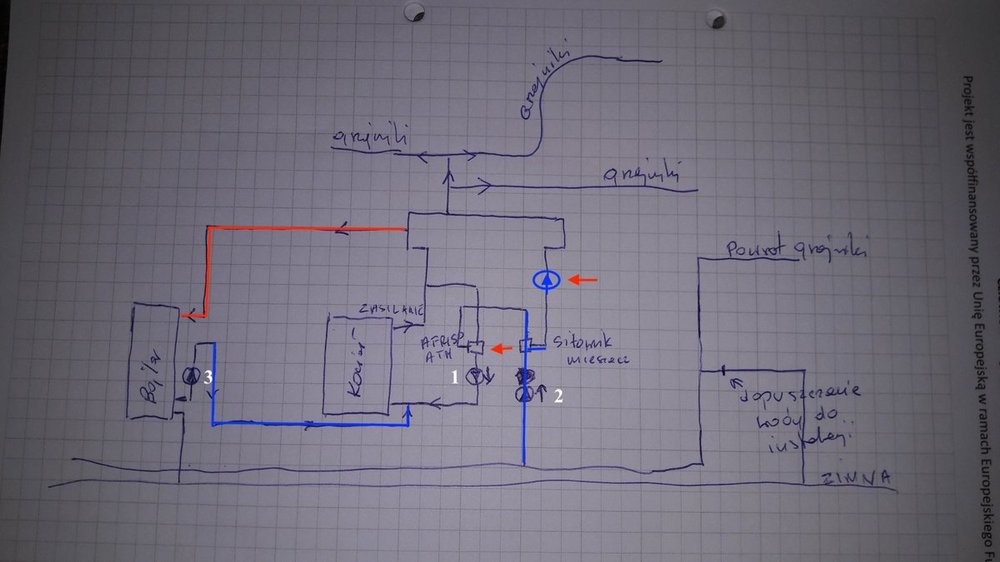 Grzejniki
grzejniki
grzejniki
Powrót grzejniki
ZASILANIE
Bojler
3
Kocioł
AFRISO
ATH
Siłownik
mieszacz
1
2
dopuszczenie
wody do
instalacji
ZIMNA
Projekt jest współfinansowany przez Unię Europejską w ramach Europejskiego Fu